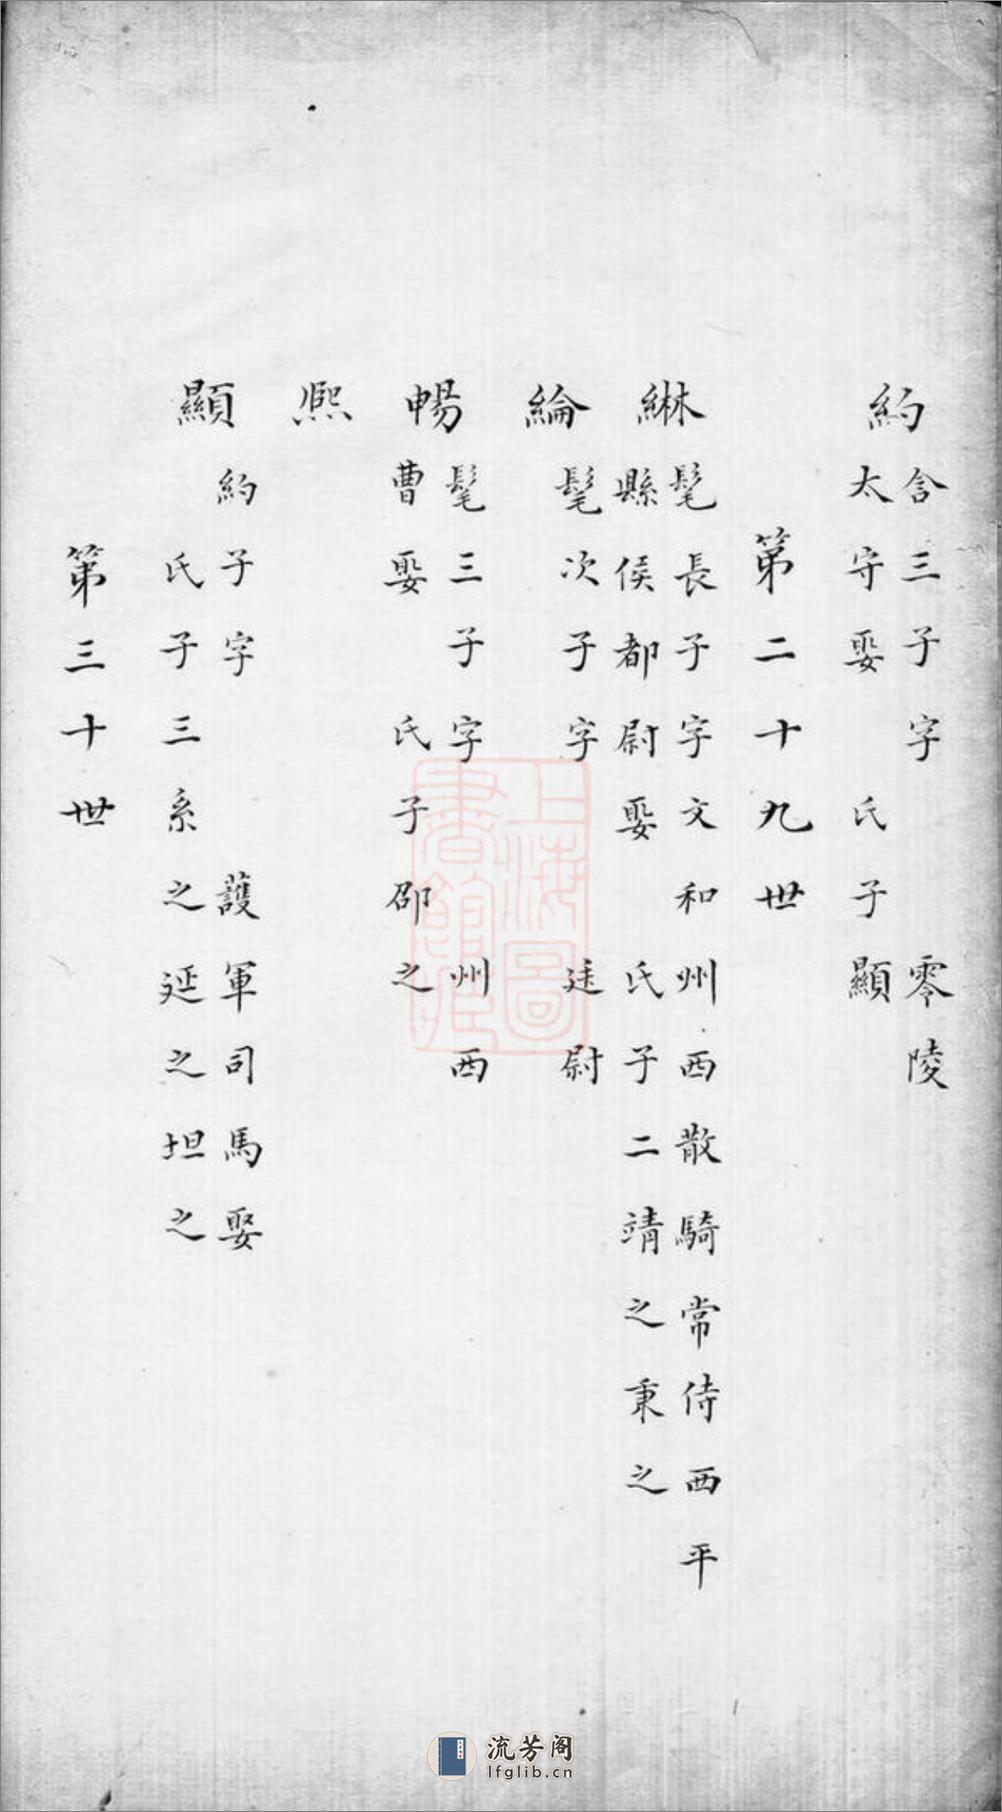 約
含三子字　零陵
太守娶　氏子顯
第二十九世
綝
髦長子字文和州西散騎常侍西平
縣侯都尉娶　氏子二靖之秉之
綸
髦次子字　廷尉
暢
髦三子字　州西
曹娶　氏子邵之
熙
顯
約子字　護軍司馬娶
氏子三系之延之坦之
第三十世
上海圖
書館藏
流芳阁
lfglib.cn